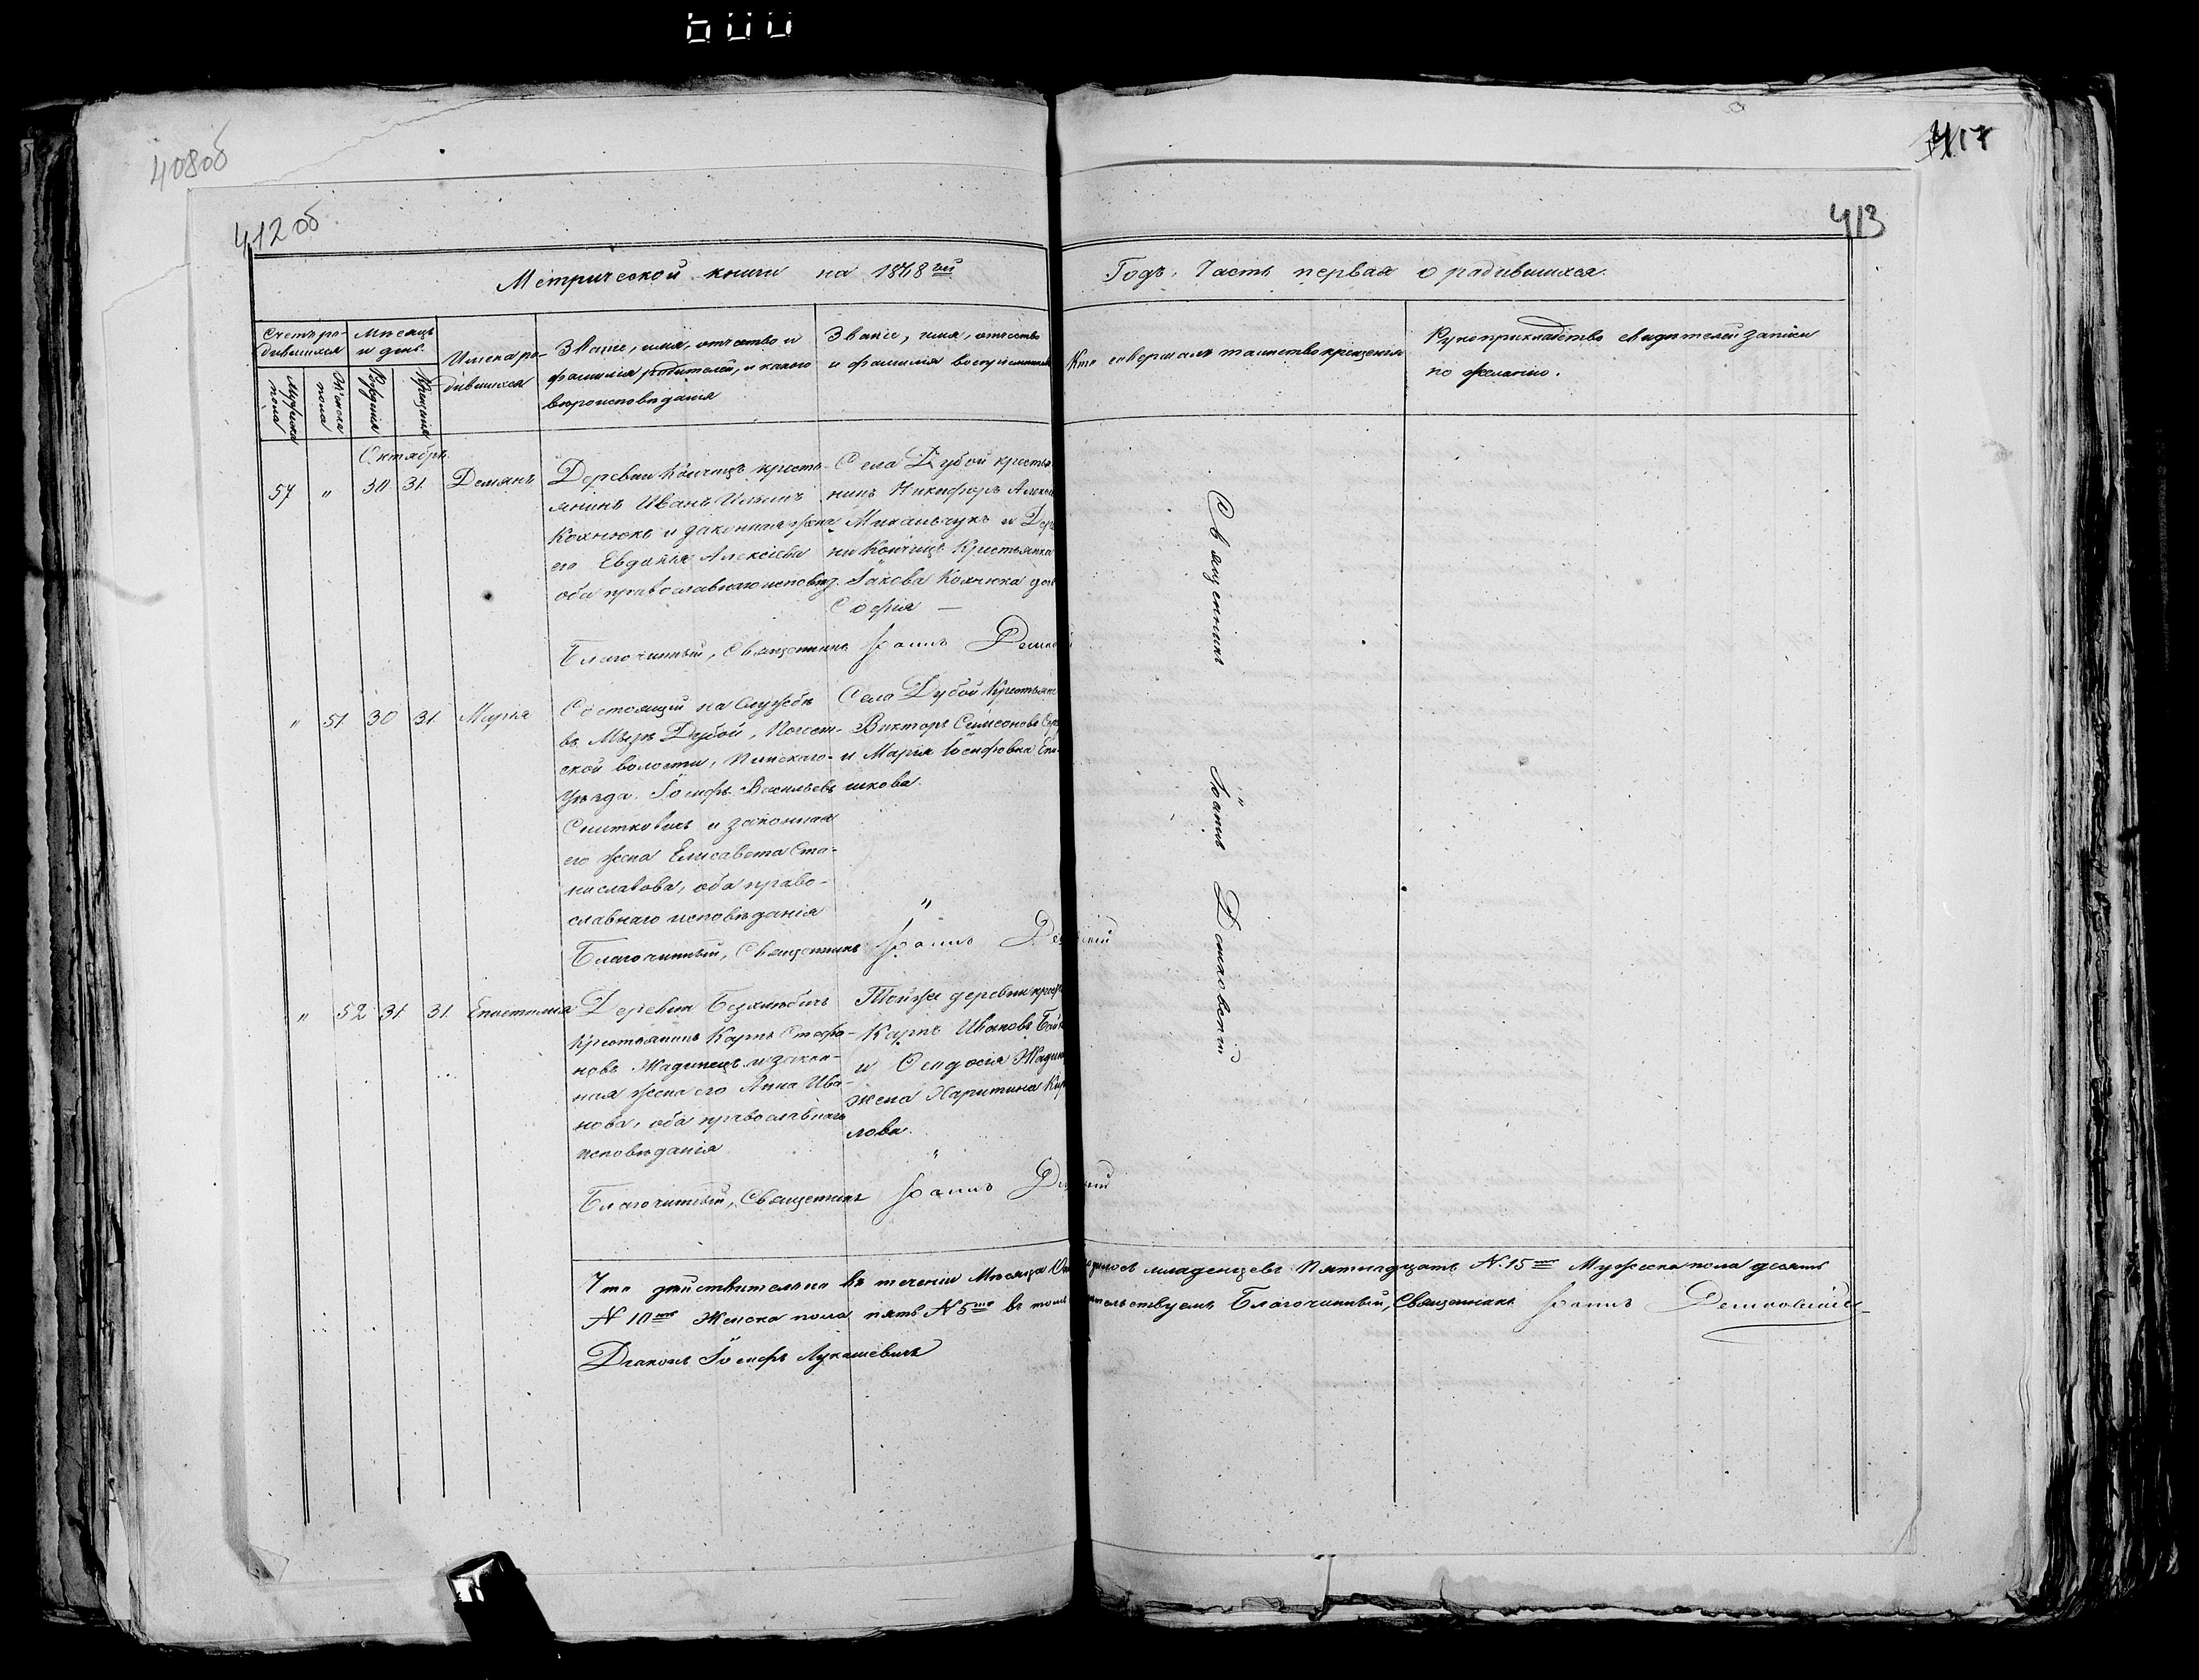 600
408об
417
412 об
413
Метрической книги на 1878 гй Годъ. Часть первая о родившихся.
Счетъ ро-
дившихся
Мужеска
пола
Женска
пола
Мѣсяцъ
и день.
Рожденія
Крещенія
Имена ро-
дившихся
Званіе, имя, отчество и
фамилія родителей, и какого
вѣроисповѣданія
Званіе, имя, отчество
и фамилія воспріемниковъ
Кто совершалъ таинство крещенія
Рукоприкладство свидѣтелей записи
по желанію.
Октябрь
57 " 30 31. Демянъ
Деревни Кончицъ кресть-
янинъ Иванъ Ильинъ
Кохнюкъ и законная жена
его Евдокія Алексіева
оба православнаго исповѣд.
Села Дубой кресть
нинъ Никифоръ
Михальчукъ и Дер
ни Кончицъ Крестьянка
Іакова Кохнюка
Софія —
Благочинный, Священникъ Іоаннъ
" 51 30 31. Марія
Состоящій на Службѣ
въ Мызѣ Дубой,
ской волости, Пинскаго
Уѣзда. Іосифъ Васильевъ
Снитковичъ и законная
его жена Елисавета Ста-
ниславова, оба право-
славнаго исповѣданія
Села Дубой Крестьян
Викторъ Симеоновъ
и Марія Іосифовна
шкова.
"
Благочинный, Священникъ Іоаннъ
" 52 31 31. Епистимія
Деревни Безхлѣбичъ
Крестьянинъ Карпъ Стефа-
новъ Жадинецъ и закон-
ная жена его Анна Ива-
нова, оба православнаго
исповѣданія
Тойже деревни
Карпъ Ивановъ
и Ѳеодосія
жена Харитина
лова.
"
Благочинный, Священникъ Іоаннъ
Священникъ Іоаннъ Демковскій
Что дѣйствительно въ теченіи Мѣсяца младенцевъ Пятнадцать N. 15 Мужеска пола десять
N 10 Женска пола пять N 5 въ томъ Благочинный, Священникъ Іоаннъ
Діаконъ Іосифъ Лукашевичъ